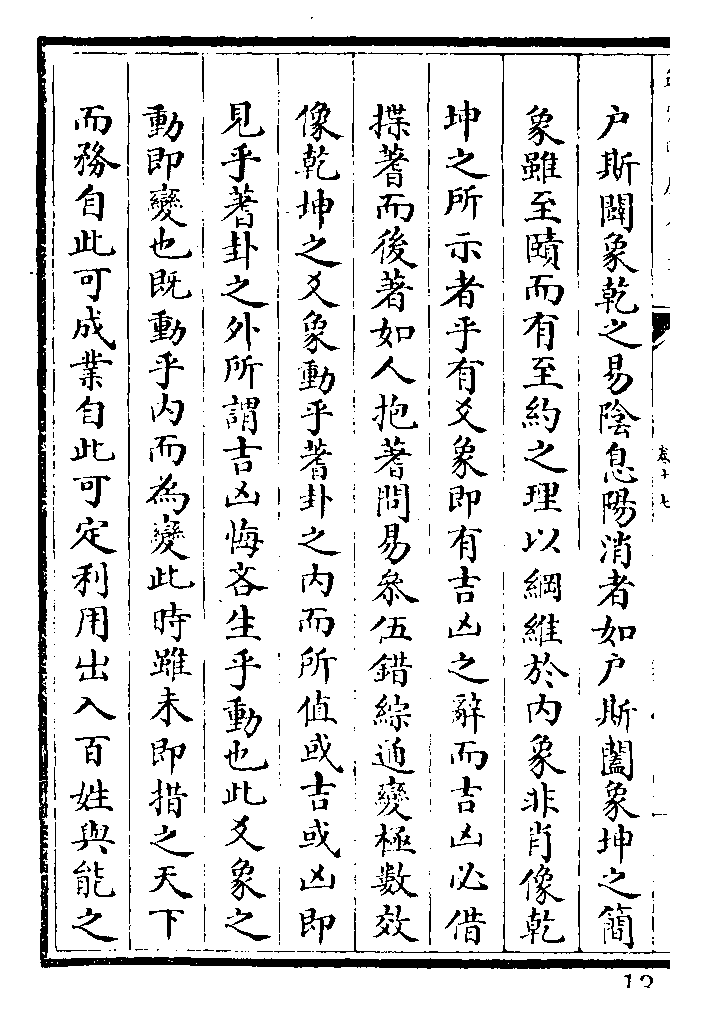 户斯闢象乾之易陰息陽消者如户斯闔象坤之簡
象雖至賾而有至約之理以綱維於内象非肖像乾
坤之所示者乎有爻象即有吉凶之辭而吉凶必借
揲蓍而後著如人抱蓍問易叅伍錯綜通變極數效
像乾坤之爻象動乎蓍卦之内而所值或吉或凶即
見乎蓍卦之外所謂吉凶悔吝生乎動也此爻象之
動即變也既動乎内而為變此時雖未即措之天下
而務自此可成業自此可定利用出入百姓與能之
卷十七